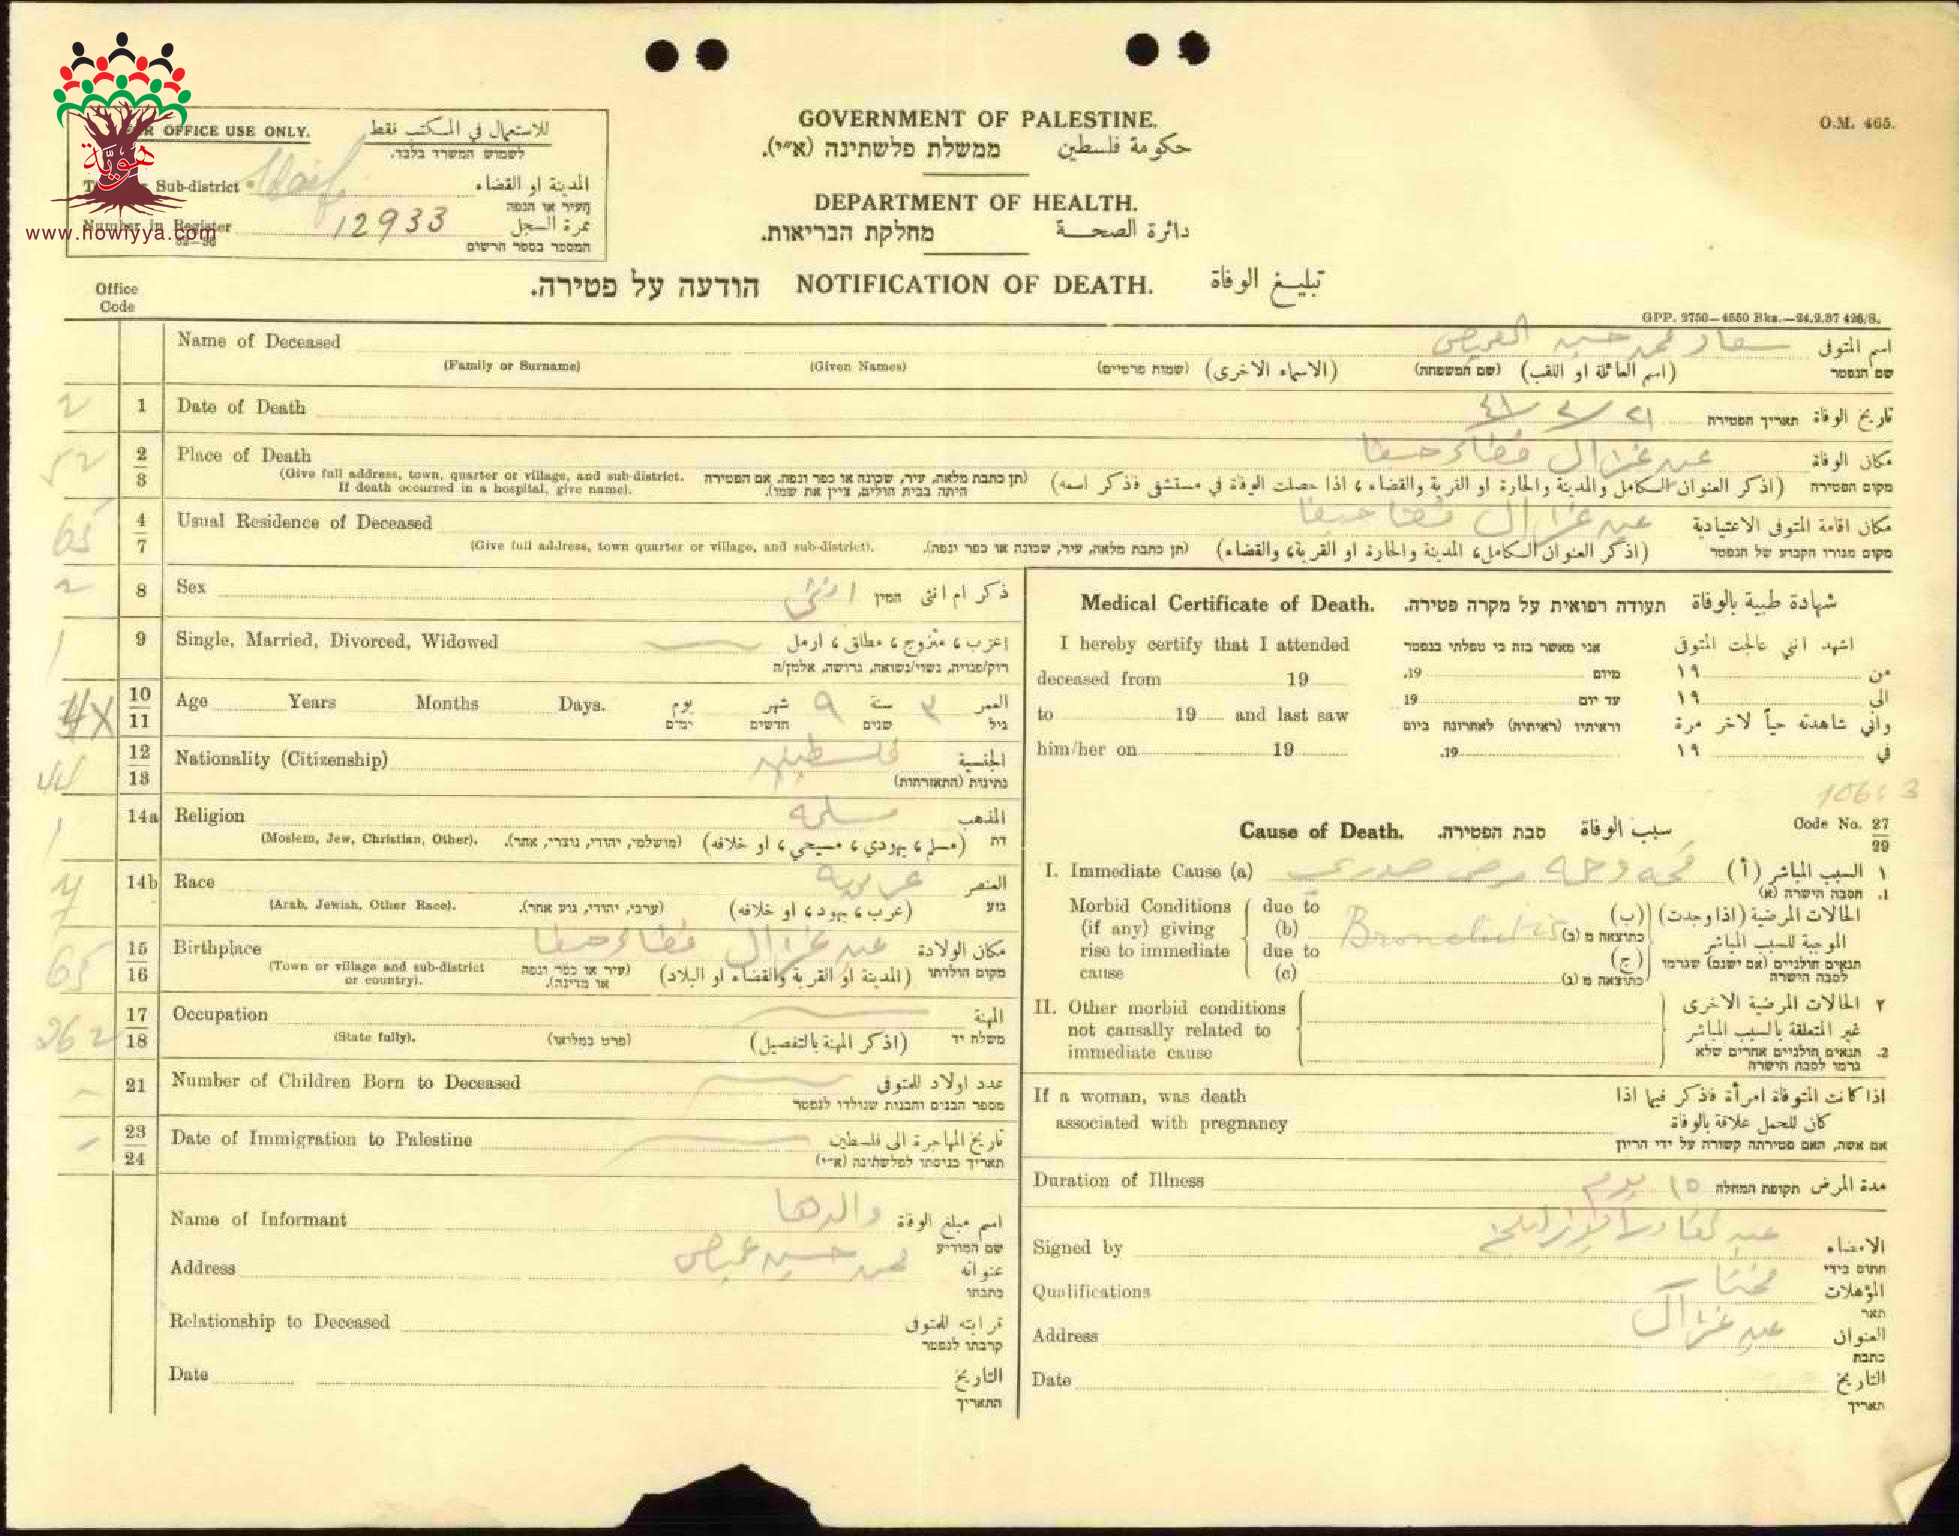 هوية
www.howiyya.com
FOR OFFICE USE ONLY. للاستعمال في المكتب فقط
לשמוש המשרד בלבד.
Sub-district Haifa المدينة او القضاء
העיר או הנפה
Number in Register 12933 نمرة السجل
המספר בספר הרשום
GOVERNMENT OF PALESTINE.
ממשלת פלשתינה (א״י). حكومة فلسطين
DEPARTMENT OF HEALTH.
מחלקת הבריאות. دائرة الصحة
O.M. 465.
הודעה על פטירה. NOTIFICATION OF DEATH. تبليغ الوفاة
Office
Code
GPP. 9750—4550 Bks.—24.2.37 426/S.
Name of Deceased سعاد محمد حسين اسم المتوفى
(Family or Surname) (Given Names) (שמות פרטיים) (الاسماء الاخرى) (שם המשפחה) (اسم العائلة او اللقب) שם הנפטר
2 1 Date of Death ٢١ תאריך הפטירה تاريخ الوفاة
52 2 Place of Death عين غزال قضاء حيفا مكان الوفاة
3 (Give full address, town, quarter or village, and sub-district. (תן כתבת מלאה, עיר, שכונה או כפר ונפה. אם הפטירה (اذكر العنوان الكامل والمدينة والحارة او القرية والقضاء، اذا حصلت الوفاة في مستشفى فذكر اسمه) מקום הפטירה
If death occurred in a hospital, give name). היתה בבית חולים, ציין את שמו).
65 4 Usual Residence of Deceased عين غزال قضا حيفا مكان اقامة المتوفى الاعتيادية
7 (Give full address, town quarter or village, and sub-district). (תן כתבת מלאה, עיר, שכונה או כפר ונפה). (اذكر العنوان الكامل، المدينة والحارة او القرية، والقضاء) מקום מגורו הקבוע של הנפטר
2 8 Sex انثى המין ذكر ام انثى
1 9 Single, Married, Divorced, Widowed اعزب، متزوج، مطلق، ارمل
רוק/פנויה, נשוי/נשואה, גרושה, אלמן/ה
4X 10 Age Years Months Days. يوم شهر ٩ سنة ٣ العمر
11 ימים חדשים שנים גיל
44 12 Nationality (Citizenship) فلسطينيه الجنسية
13 נתינות (התאזרחות)
1 14a Religion مسلمه المذهب
(Moslem, Jew, Christian, Other). (מושלמי, יהודי, נוצרי, אחר). (مسلم، يهودي، مسيحي، او خلافه) דת
14b Race عربيه العنصر
(Arab, Jewish, Other Race). (ערבי, יהודי, גזע אחר). (عرب، يهود، او خلافه) גזע
65 15 Birthplace عين غزال قضاء حيفا مكان الولادة
16 (Town or village and sub-district (עיר או כפר ונפה (المدينة او القرية والقضاء او البلاد) מקום הולדתו
or country). או מדינה).
262 17 Occupation المهنة
18 (State fully). (פרט במלואו) (اذكر المهنة بالتفصيل) משלח יד
21 Number of Children Born to Deceased عدد اولاد للمتوفى
מספר הבנים והבנות שנולדו לנפטר
23 Date of Immigration to Palestine تاريخ المهاجرة الى فلسطين
24 תאריך כניסתו לפלשתינה (א״י)
Name of Informant والدها اسم مبلغ الوفاة
שם המודיע
Address محمد حسين عنوانه
כתבתו
Relationship to Deceased قرابته للمتوفى
קרבתו לנפטר
Date التاريخ
התאריך
Medical Certificate of Death. תעודה רפואית על מקרה פטירה. شهادة طبية بالوفاة
I hereby certify that I attended אני מאשר בזה כי טפלתי בנפטר اشهد انني عالجت المتوفى
deceased from 19 .19 מיום ١٩ من
to 19 and last saw 19 עד יום ١٩ الى
וראיתיו (ראיתיה) לאחרונה ביום واني شاهدته حياً لاخر مرة
him/her on 19 .19 ١٩ في
106: 3
Cause of Death. סבת הפטירה. سبب الوفاة Code No. 27
29
I. Immediate Cause (a) مرض صدري السبب المباشر (أ) ١
1. הסבה הישרה (א)
Morbid Conditions due to الحالات المرضية (اذا وجدت) (ب)
(if any) giving (b) Bronchitis כתוצאה מ (ב) الموجبة للسبب المباشر
rise to immediate due to (ج) תנאים חולניים (אם ישנם) שגרמו
cause (c) כתוצאה מ (ג) לסבה הישרה
II. Other morbid conditions ٢ الحالات المرضية الاخرى
not causally related to غير المتعلقة بالسبب المباشر
immediate cause 2. תנאים חולניים אחרים שלא
גרמו לסבה הישרה
If a woman, was death اذا كانت المتوفاة امرأة فذكر فيما اذا
associated with pregnancy كان للحمل علاقة بالوفاة
אם אשה, האם פטירתה קשורה על ידי הריון
Duration of Illness ١٥ يوم תקופת המחלה مدة المرض
Signed by الامضاء
חתום בידי
Qualifications مختار المؤهلات
תאר
Address عين غزال العنوان
כתבת
Date التاريخ
תאריך